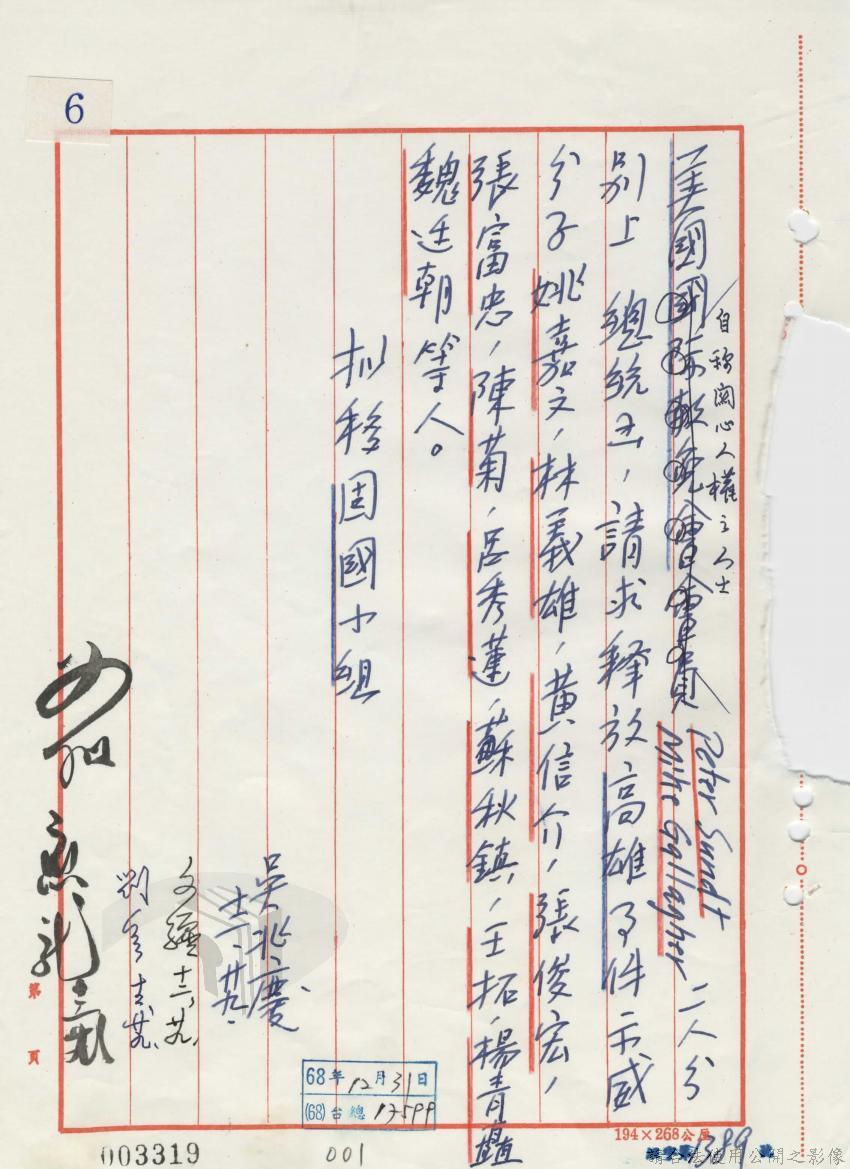 6
自称関心人權之人士
一美國 Peter Sundt Mike Gallagher 二人分
別上 總統函，請求釋放高雄事件示威
分子姚嘉文，林義雄，黃信介，張俊宏，
張富忠，陳菊，呂秀蓮，蘇秋鎮，王拓，楊青矗
魏廷朝等人。
拟移固國小組
吳兆慶
十二、廿九.
如擬
第 頁
68年12月31日
(68)台總 17599
194×268公厘
1389
003319
001
請合法使用公開之影像